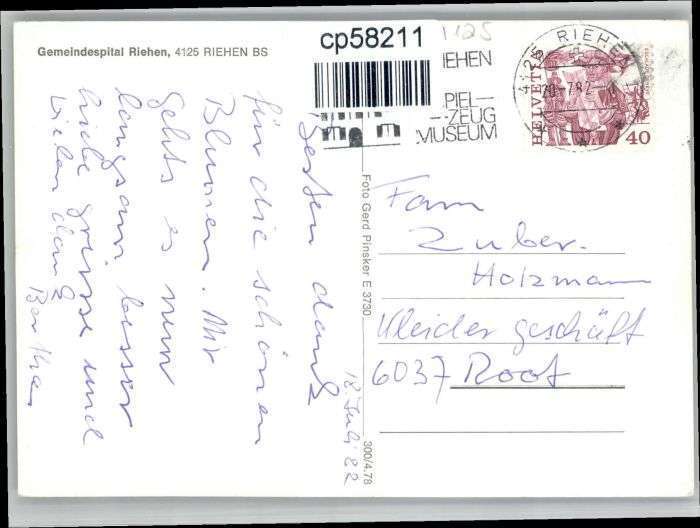 Gemeindespital Riehen, 4125 RIEHEN BS
cp58211
1125
IEHEN
PIEL-
-ZEUG
MUSEUM
4125 RIEHEN
20.-7.82
HELVETIA
40
18. Juli 82
besten dank
für die schönen
Blumen. Mir
gehts es nun
langsam besser
liebe grüsse und
vielen dank
Foto Gerd Pinsker E 3730
300/4.78
Fam
Zuber.
Holzmann
Kleider geschäft
6037 Root